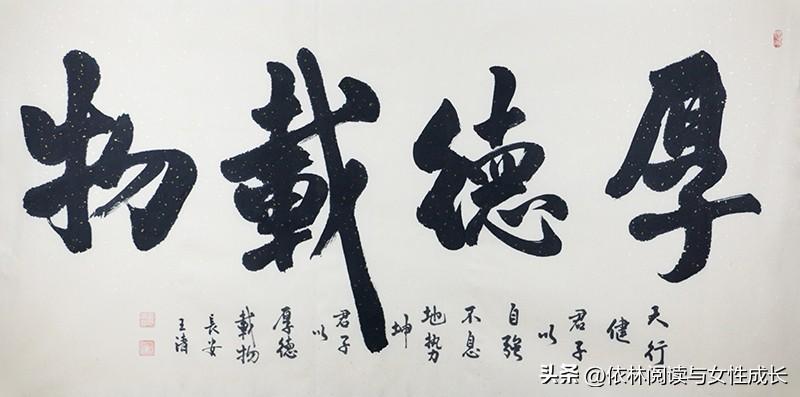 厚德載物
天行
健
君子
以
自強
不息
地势
坤
君子
以
厚德
載物
長安
王涛
头条 @依林阅读与女性成长